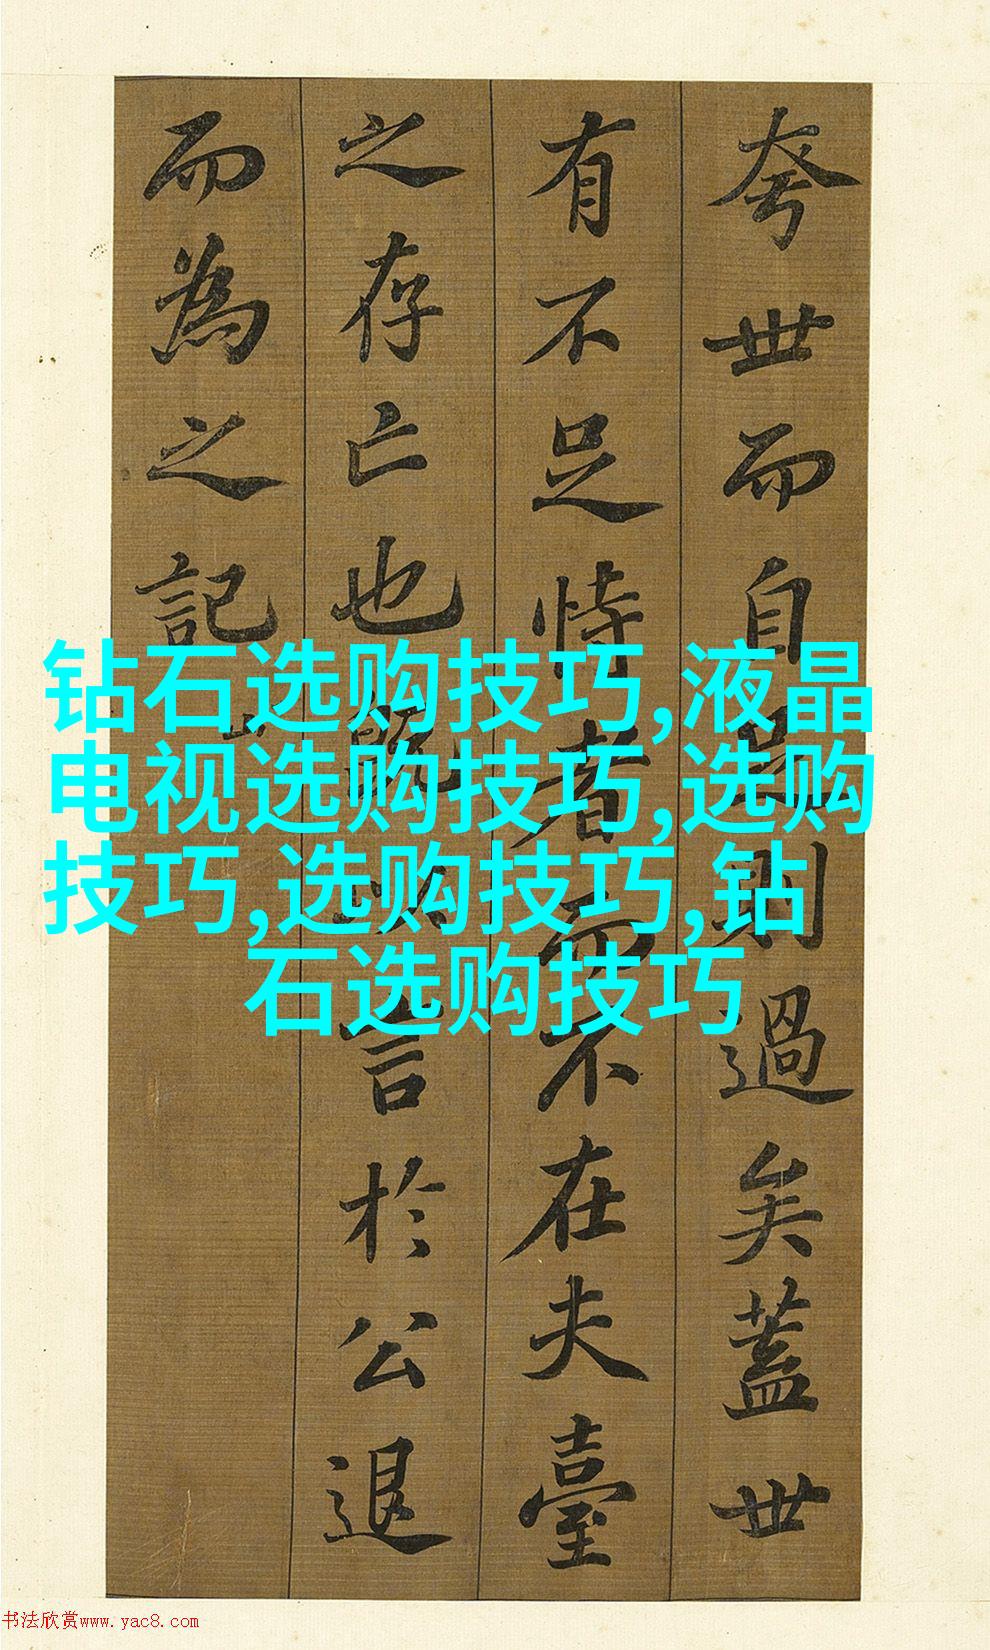 夸世而自足則過矣蓋世
有不足恃者而不在夫臺
之存亡也既以言於公退
而為之記
钻石选购技巧,液晶
电视选购技巧,选购
技巧,选购技巧,钻
石选购技巧
书法欣赏www.yac8.com